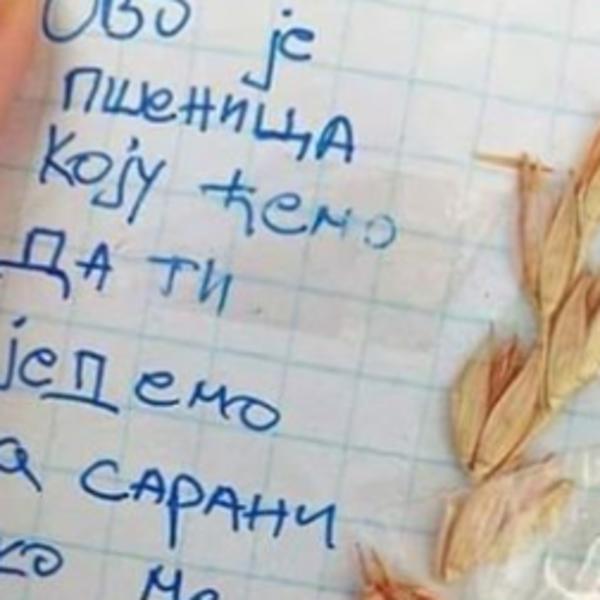 Ово је
пшеница
коју ћемо
да ти
једемо
сарани